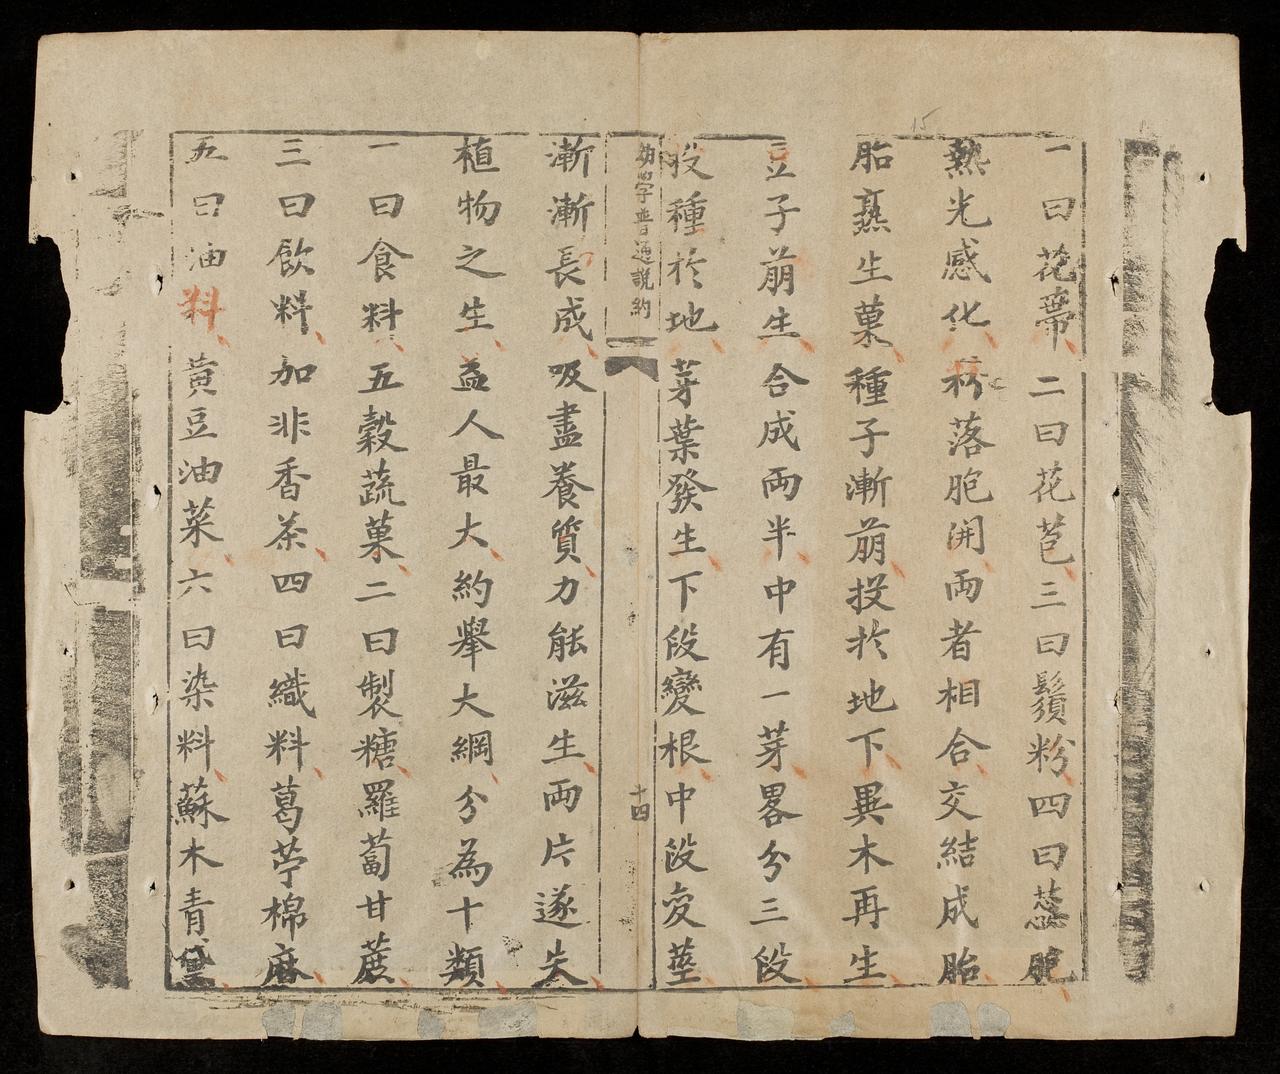 15
一曰花蒂二曰花苞三曰鬚粉四曰蕊胞
熱光感化粉落胞開両者相合交結成胎
胎熟生菓種子漸萠投於地下異木再生
豆子萠生合成両半中有一芽畧分三段
投種於地芽葉發生下段變根中段变莖
幼學普通說約
十四
漸漸長成吸盡養質力能滋生両片遂失
植物之生益人最大約舉大綱分為十類
一曰食料五穀蔬菓二曰製糖羅蔔甘蔗
三曰飲料加非香茶四曰織料葛苧棉麻
五曰油料黄豆油菜六曰染料蘇木青黛